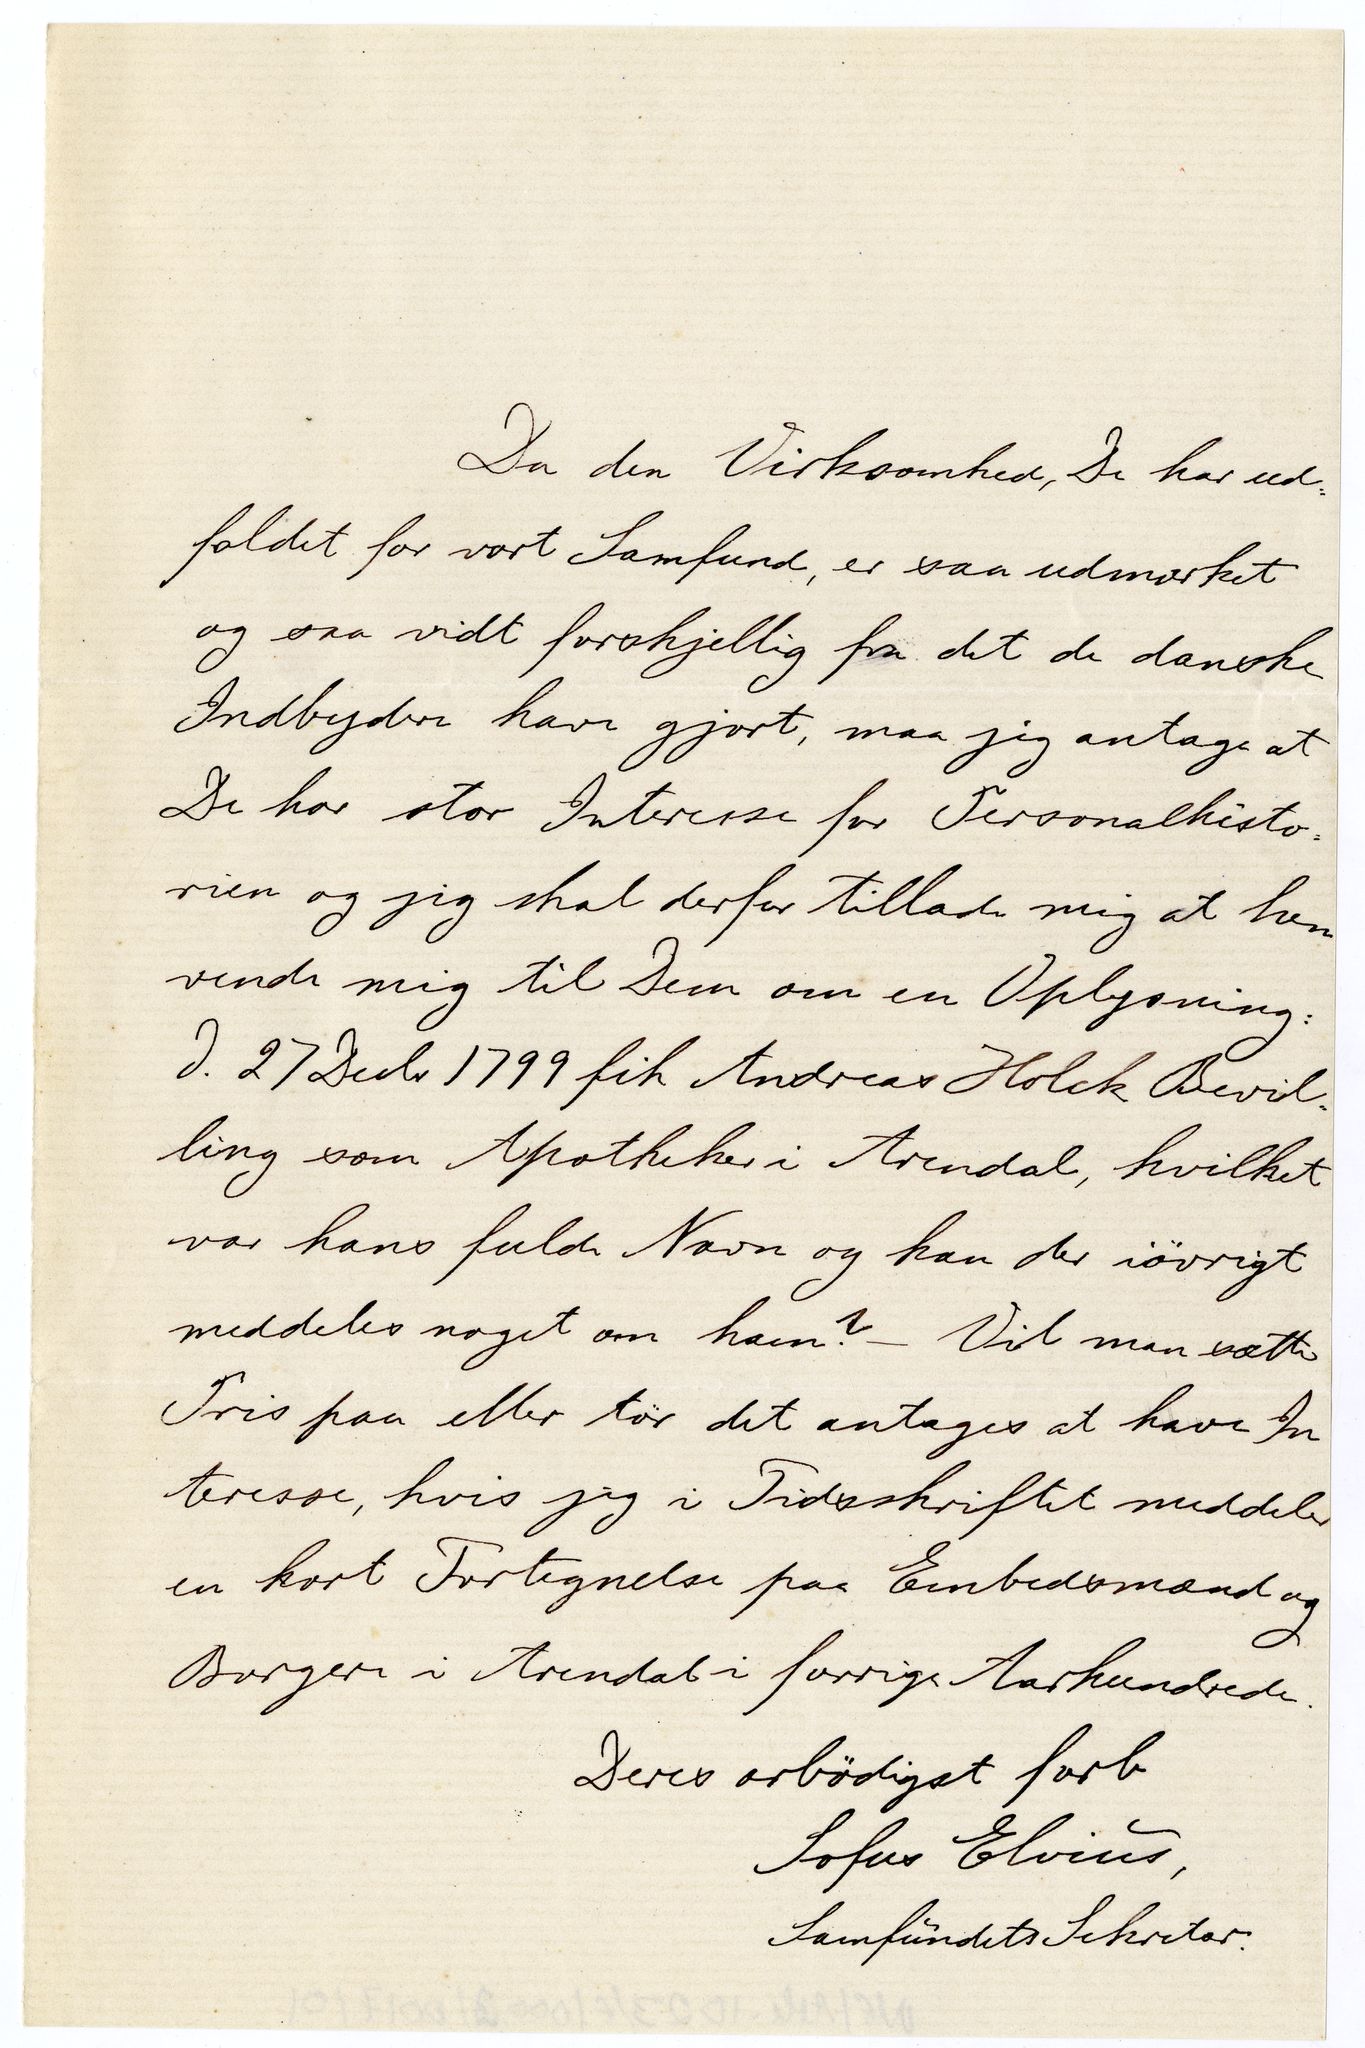 Da den Virksomhed, De har ud=
foldet for vort Samfund, er saa udmærket
og saa vidt forskjellig fra det de danske
Indbydere have gjort, maa jeg antage at
De har stor Interesse for Personalhisto=
rien og jeg skal derfor tillade mig at hen
vende mig til Dem om en Oplysning:
D. 27 Decbr 1799 fik Andreas Holck Bevil=
ling som Apotheker i Arendal, hvilket
var hans fulde Navn og kan der iövrigt
meddeles noget om ham? — Vil man sætte
Pris paa eller tör det antages at have In
teresse, hvis jeg i Tidsskriftet meddeler
en kort Fortegnelse paa Embedsmænd og
Borgere i Arendal i forrige Aarhundrede.
Deres ærbödigst forb
Sofus Elvius,
Samfundets Sekretær.